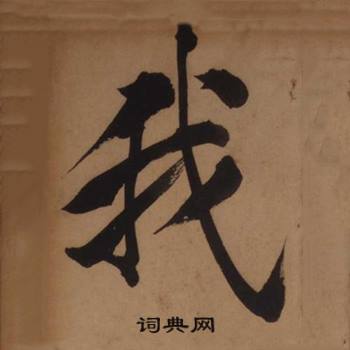 我
词典网